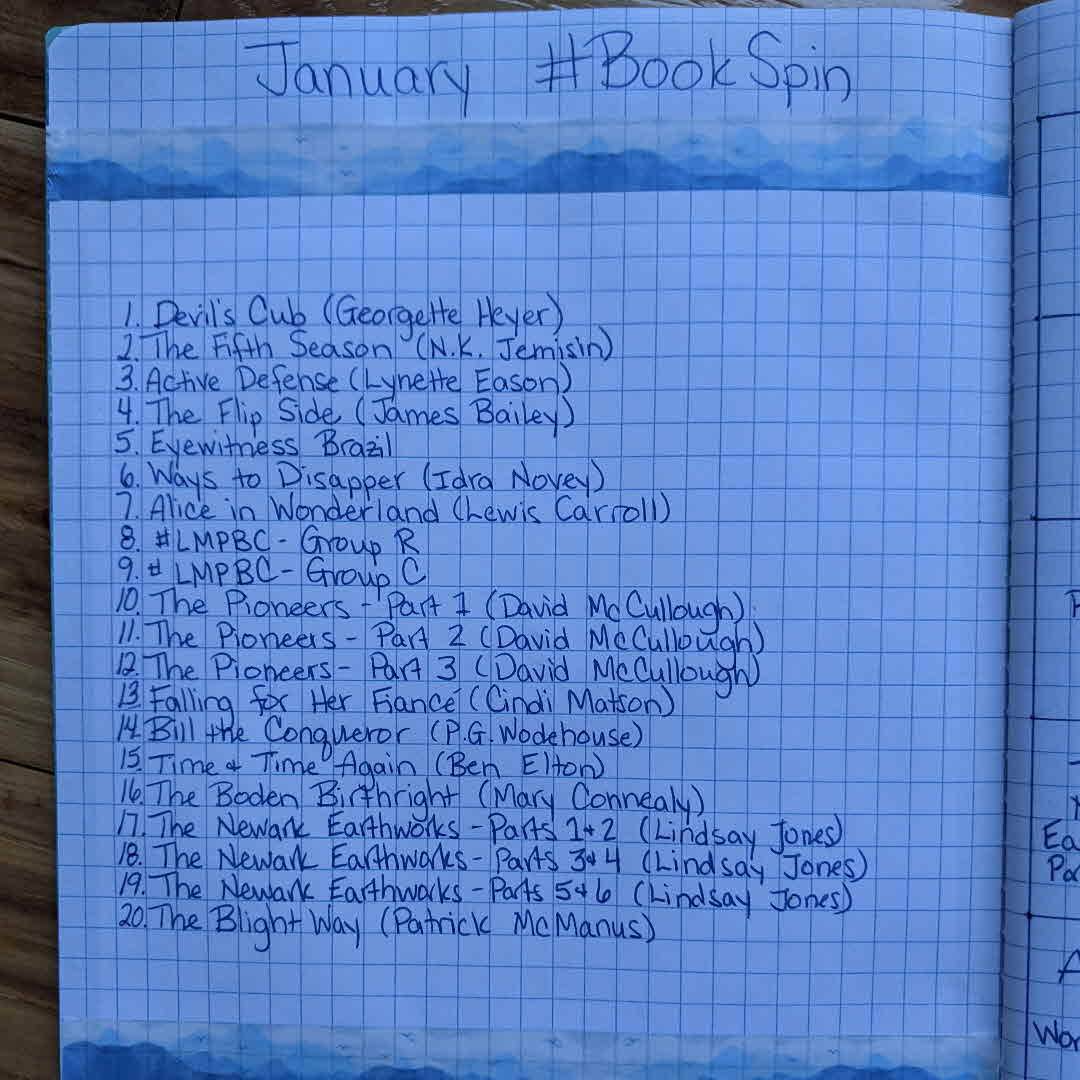 January #BookSpin
1. Devil's Cub (Georgette Heyer)
2. The Fifth Season (N.K. Jemisin)
3. Active Defense (Lynette Eason)
4. The Flip Side (James Bailey)
5. Eyewitness Brazil
6. Ways to Disapper (Idra Novey)
7. Alice in Wonderland (Lewis Carroll)
8. #LMPBC - Group R
9. #LMPBC - Group C
10. The Pioneers - Part 1 (David McCullough)
11. The Pioneers - Part 2 (David McCullough)
12. The Pioneers - Part 3 (David McCullough)
13. Falling for Her Fiancé (Cindi Matson)
14. Bill the Conqueror (P.G. Wodehouse)
15. Time & Time Again (Ben Elton)
16. The Boden Birthright (Mary Connealy)
17. The Newark Earthworks - Parts 1+2 (Lindsay Jones)
18. The Newark Earthworks - Parts 3+4 (Lindsay Jones)
19. The Newark Earthworks - Parts 5+6 (Lindsay Jones)
20. The Blight Way (Patrick McManus)